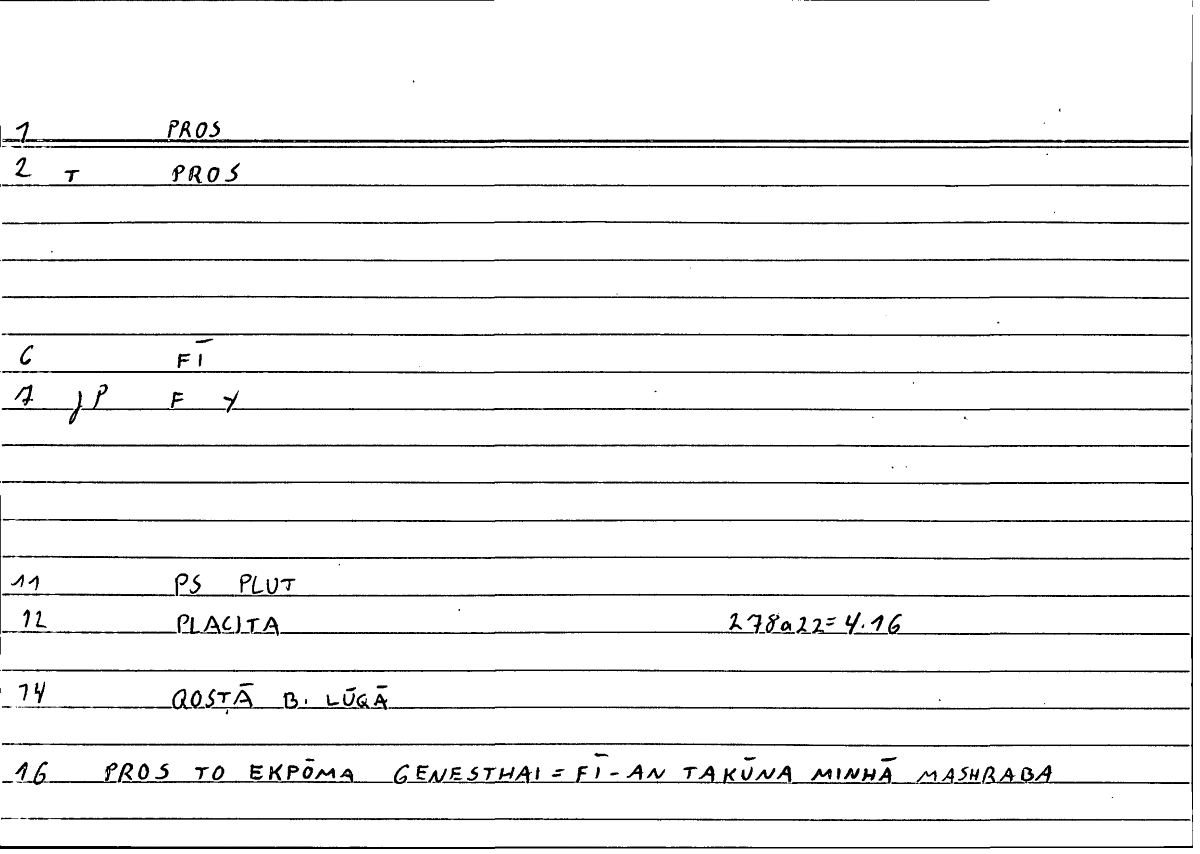 1 PROS
2 T PROS
6 FĪ
7 JP F Y
11 PS PLUT
12 PLACITA 278a22=4.16
14 QOSṬĀ B. LŪQĀ
16 PROS TO EKPŌMA GENESTHAI = FĪ-AN TAKŪNA MINHĀ MASHRABA